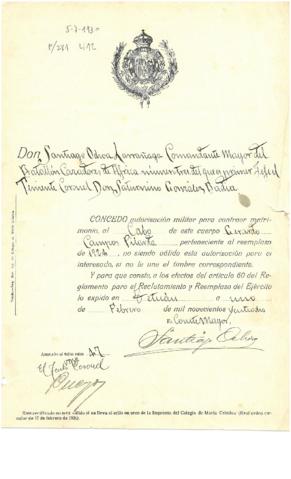 5-7-1930
Don Santiago Odroa Larrañaga Comandante Mayor del
Batallón Cazadores de Africa número tres del que es primer Jefe el
Teniente Coronel Don Saturnino González Badía
CONCEDO autorización militar para contraer matri-
monio, al Cabo de este cuerpo Gerardo
Campos perteneciente al reemplazo
de 1926 no siendo válida esta autorización para el
interesado, si no le une el timbre correspondiente.
Y para que conste, a los efectos del artículo 60 del Re-
glamento para el Reclutamiento y Reemplazo del Ejército
lo expido en Tetuán a uno
de Febrero de mil novecientos
El Comte Mayor,
Santiago
Anotado al folio núm. 47
El Tente Coronel
Este certificado no será válido si no lleva el sello en seco de la Imprenta del Colegio de María Cristina (Real orden cir-
cular de 17 de febrero de 1926).